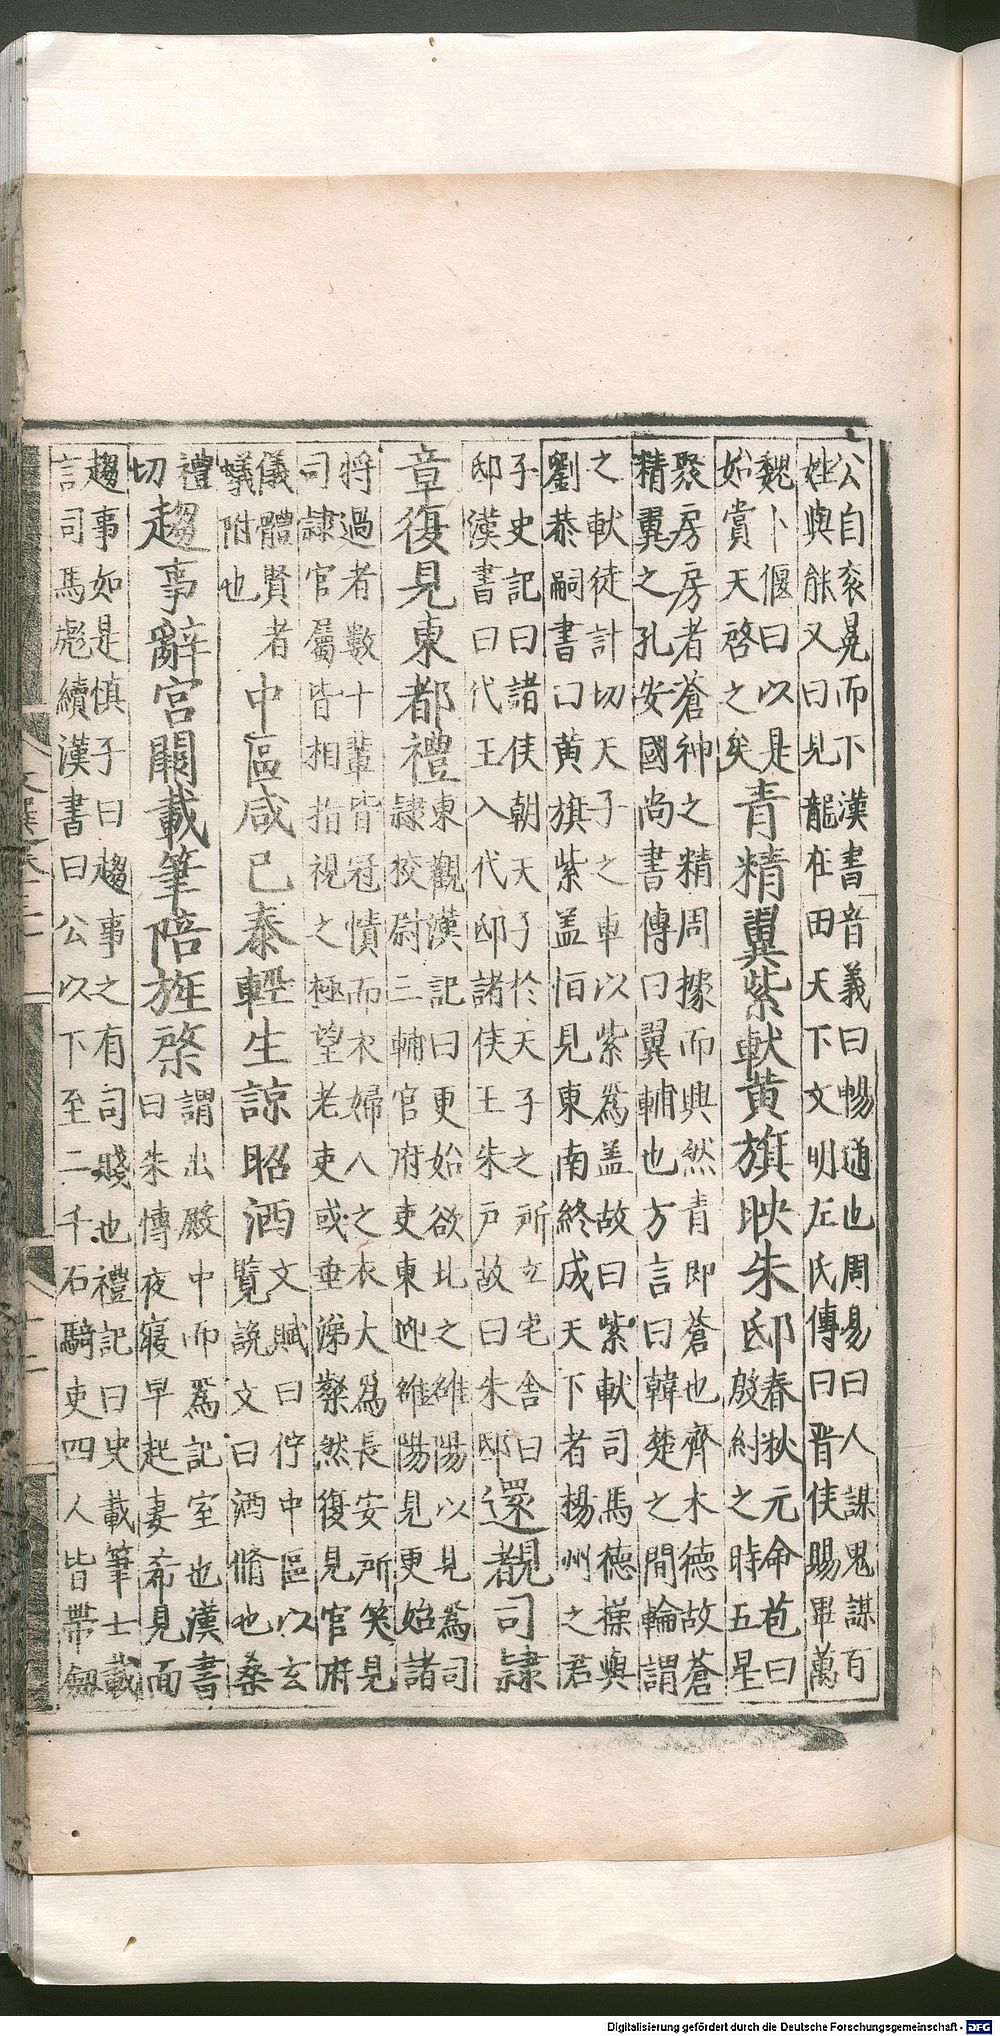 公自衮晃而下漢書音義曰暢通也周易曰人謀鬼謀百
姓與能又曰見龍在田天下文明左氏傳曰晉侯賜畢萬
魏卜偃曰以是
始賞天啓之矣
青精翼紫軑黃旗映朱邸
春秋元命苞曰
殷紂之時五星
聚房房者蒼神之精周據而興然青即蒼也齊木德故蒼
精翼之孔安國尚書傳曰翼輔也方言曰韓楚之間輪謂
之軑徒計切天子之車以紫為盖故曰紫軑司馬德操與
劉恭嗣書曰黃旗紫盖恒見東南終成天下者揚州之君
子史記曰諸侯朝天子於天子之所立宅舍曰
邸漢書曰代王入代邸諸侯王朱戸故曰朱邸
還覩司隷
章復見東都禮
東觀漢記曰更始欲北之雒陽以見為司
隷挍尉三輔官府吏東迎雒陽見更始諸
將過者數十輩皆冠幘而衣婦人之衣大為長安所笑見
司隷官屬皆相指視之極望老吏或垂涕粲然復見官府
儀體賢者
蟻附也
中區咸已泰輕生諒昭洒
文賦曰佇中區以玄
覽說文曰洒滌也桑
禮
切
趨事辭宮闕載筆陪旌棨
謂出殿中而為記室也漢書
曰朱博夜寢早起妻希見面
趨事如是慎子曰趨事之有司賤也禮記曰史載筆士載
言司馬彪續漢書曰公以下至二千石騎吏四人皆帶劔
Digitalisierung gefördert durch die Deutsche Forschungsgemeinschaft - DFG